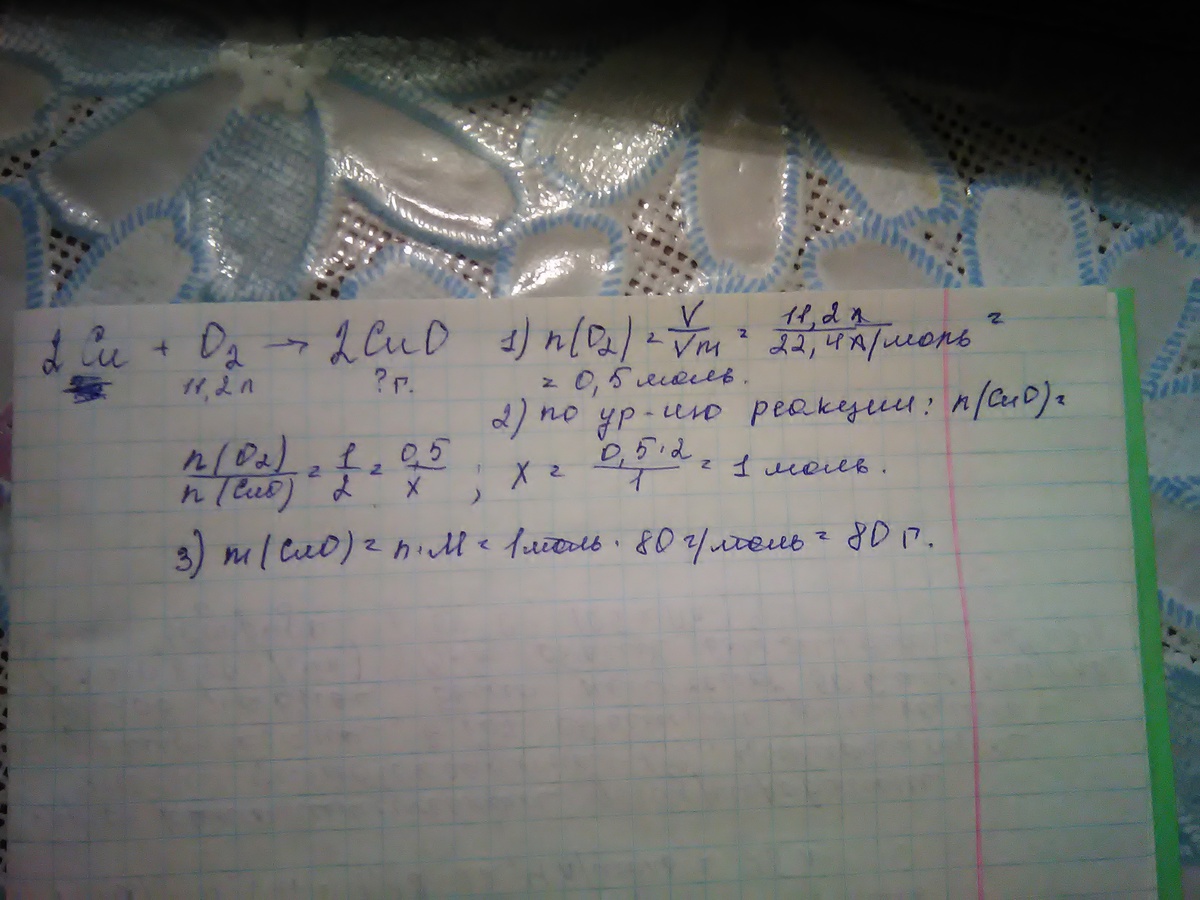 2Cu + O₂ → 2CuO
11,2 л ? г.
1) n(O₂) = V/Vm = 11,2 л/22,4 л/моль =
= 0,5 моль.
2) по ур-ию реакции: n(CuO) =
n(O₂)/n(CuO) = 1/2 = 0,5/x ; x = 0,5·2/1 = 1 моль.
3) m(CuO) = n·M = 1 моль · 80 г/моль = 80 г.